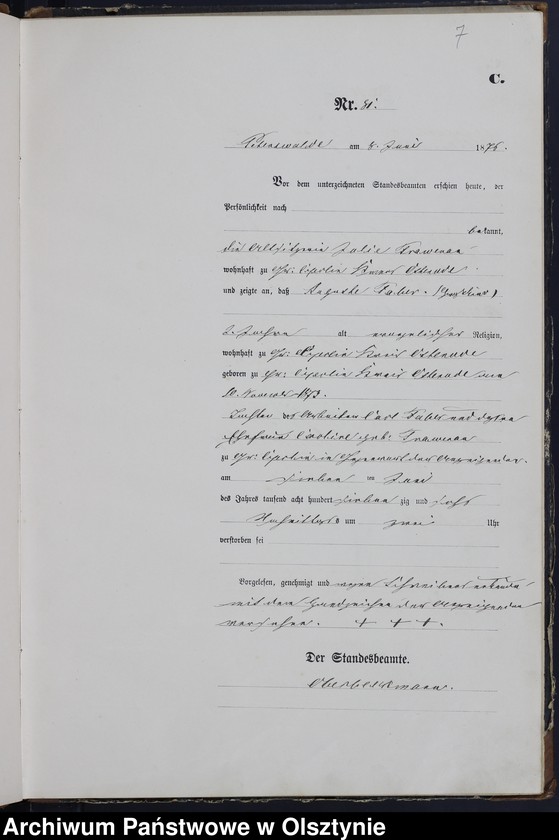 7
C.
Nr. 81.
Peterswalde am 8. Juni 1876.
Vor dem unterzeichneten Standesbeamten erschien heute, der
Persönlichkeit nach
bekannt,
die Altsitzerin Julie
wohnhaft zu Gr: Kreis Osterode
und zeigte an, daß Auguste Faber
2 Jahre alt evangelischer Religion,
wohnhaft zu Gr: Kreis Osterode
geboren zu Gr: Kreis Osterode am
1873.
Tochter des Arbeiters Carl Faber und dessen
Ehefrau Caroline geb:
zu Gr: in Gegenwart der Anzeigenden
am sieben ten Juni
des Jahres tausend acht hundert sieben zig und sechs
Nachmittags um zwei Uhr
verstorben sei
Vorgelesen, genehmigt und wegen Schreibens
mit dem Handzeichen der Anzeigenden
versehen. + + +.
Der Standesbeamte.
Archiwum Państwowe w Olsztynie